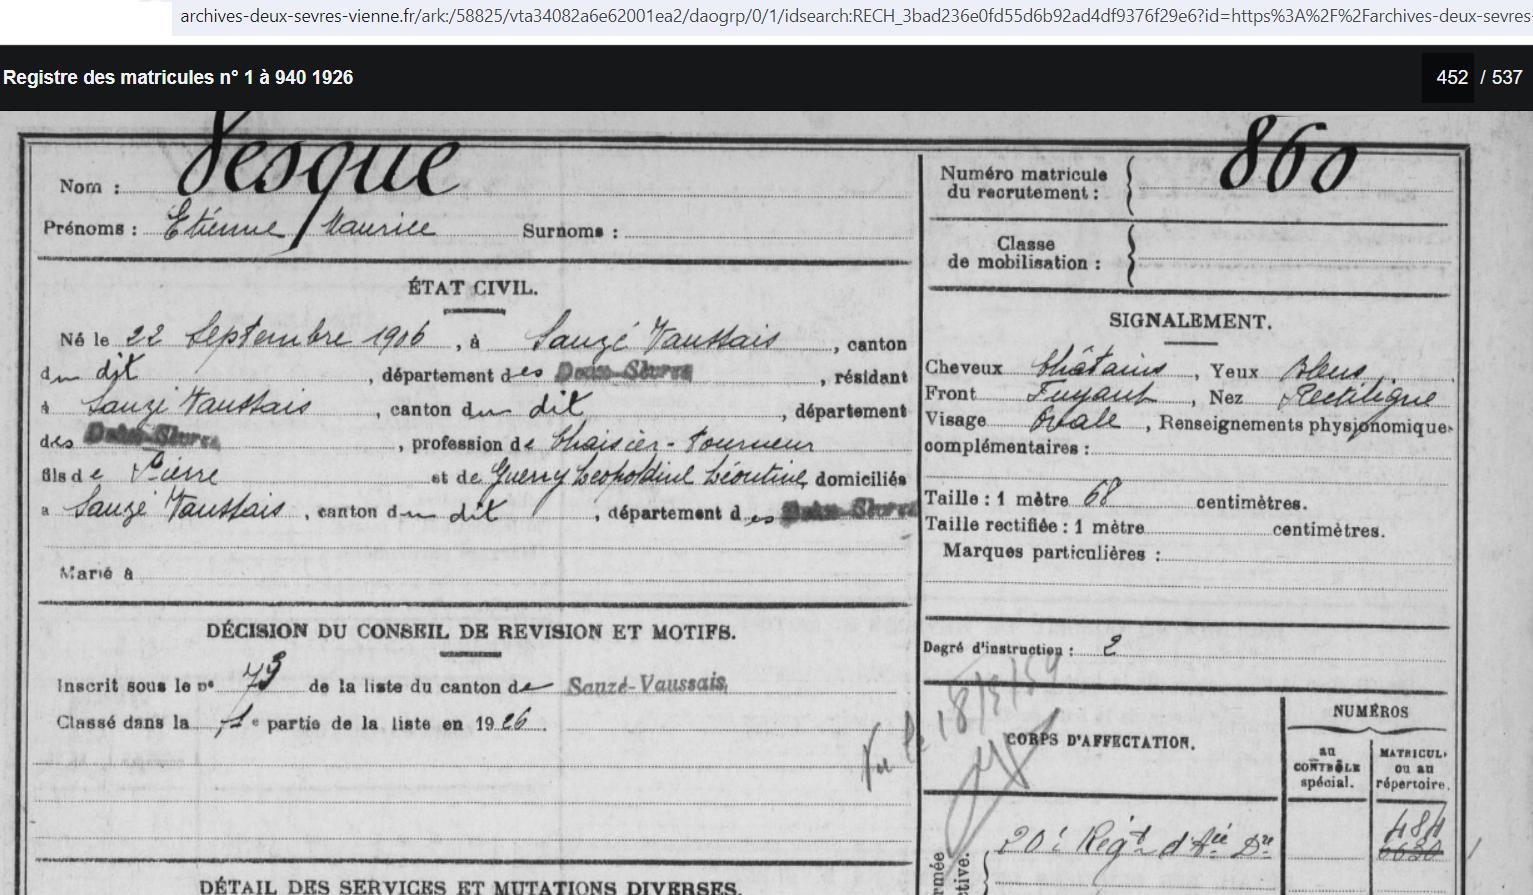 archives-deux-sevres-vienne.fr/ark:/58825/vta34082a6e62001ea2/daogrp/0/1/idsearch:RECH_3bad236e0fd55d6b92ad4df9376f29e6?id=https%3A%2F%2Farchives-deux-sevres-
Registre des matricules n° 1 à 940 1926
452 / 537
Nom : Vesque
Prénoms : Etienne Maurice Surnoms :
ÉTAT CIVIL.
Né le 22 Septembre 1906, à Sauzé Vaussais, canton
du dit, département des Deux-Sèvres, résidant
à Sauzé Vaussais, canton du dit, département
des Deux-Sèvres, profession de Chaisier-Tourneur
fils de Pierre et de Guerry Léopoldine Léontine, domiciliés
à Sauzé Vaussais, canton du dit, département des Deux-Sèvres
Marié à
DÉCISION DU CONSEIL DE REVISION ET MOTIFS.
Inscrit sous le n° 73 de la liste du canton de Sauzé-Vaussais
Classé dans la 1e partie de la liste en 1926.
DÉTAIL DES SERVICES ET MUTATIONS DIVERSES.
Numéro matricule
du recrutement : 860
Classe
de mobilisation :
SIGNALEMENT.
Cheveux Châtains, Yeux Bleus
Front Fuyant, Nez Rectiligne
Visage Ovale, Renseignements physionomiques
complémentaires :
Taille : 1 mètre 68 centimètres.
Taille rectifiée : 1 mètre centimètres.
Marques particulières :
Degré d'instruction : 2
Vu le 18/3/59
CORPS D'AFFECTATION.
NUMÉROS
au
CONTRÔLE
spécial.
MATRICUL.
ou au
répertoire.
20e Régt d'Aie Dre
484